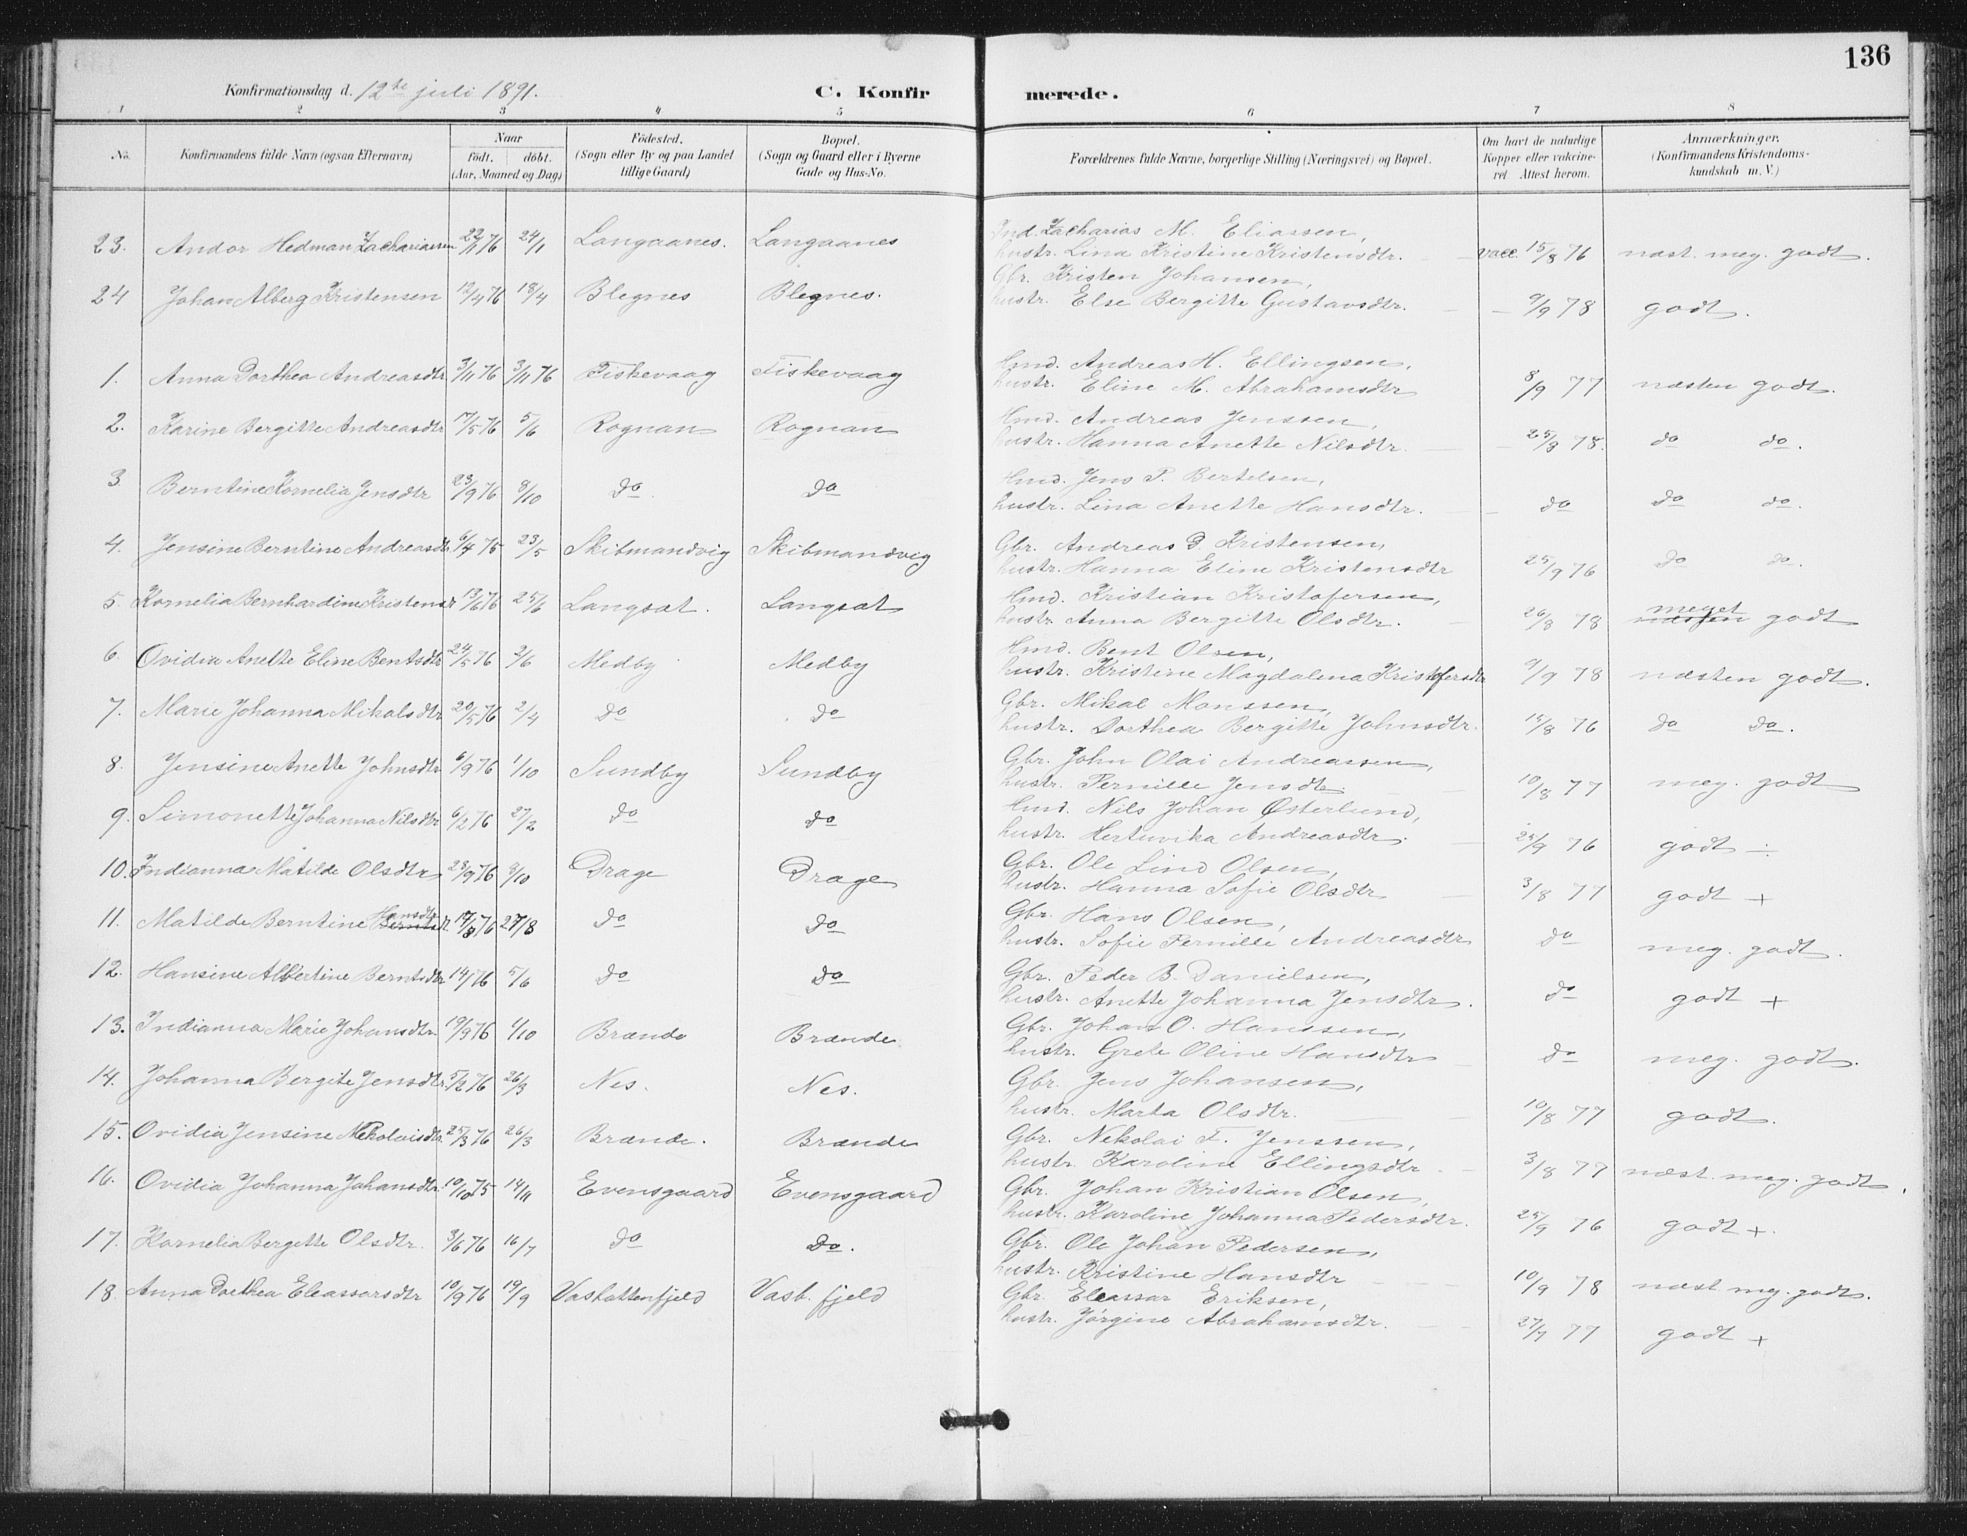 136
Konfirmationsdag d. 12te juli 1891. C. Konfirmerede.
1 2 3 4 5 6 7 8
No. Konfirmandens fulde Navn (ogsaa Efternavn) Naar født. døbt. (Aar, Maaned og Dag) Fødested. (Sogn eller By og paa Landet tillige Gaard) Bopæl. (Sogn og Gaard eller i Byerne Gade og Hus-No. Forældrenes fulde Navne, borgerlige Stilling (Næringsvei) og Bopæl. Om havt de naturlige Kopper eller vakcineret Attest herom. Anmærkninger. (Konfirmandens Kristendomskundskab m. V.)
23. Andor Hedman Zachariassen 22/11 76 24/1 Langaanes. Langaanes Ind. Zacharias M. Eliassen,
hustr. Lina Kristine Kristensdtr. vacc. 15/8 76 næst. meg. godt.
24 Johan Alberg Kristensen 12/4 76 18/4 Blegnes Blegnes. Gbr. Kristen Johansen,
hustr. Else Bergitte Gustavsdtr. 9/9 78 godt.
1. Anna Dorthea Andreasdtr 3/11 76 3/11 76 Fiskevaag Fiskevaag Hmd. Andreas H. Ellingsen,
hustr. Eline M. Abrahamsdtr 8/9 77 næsten godt.
2. Karine Bergitte Andreasdtr 17/5 76 5/6 Rognan Rognan Hmd. Andreas Jenssen,
hustr. Hanna Anette Nilsdtr. 25/8 78. do do.
3 Berntine Kornelia Jensdtr 23/9 76 8/10 do do Hmd. Jens P. Bertelsen,
hustr. Lina Anette Hansdtr. do do do.
4. Jensine Berntine Andreasdtr 6/4 75 23/5 Skibmandvig Skibmandvig Gbr. Andreas D. Kristensen,
hustr. Hanna Eline Kristensdtr 25/9 76 do do.
5. Kornelia Bernhardine Kristensdtr 13/6 76 25/6 Langsæt. Langsæt Hmd. Kristian Kristofersen,
hustr. Anna Bergitte Olsdtr. 26/8 78 meget næsten godt
6. Ovidia Anette Eline Bentsdtr 24/5 76 2/6 Medby Medby Hmd. Bent Olsen,
hustr. Kristine Magdalena Kristofersdtr 9/9 78 næsten godt.
7. Marie Johanna Mikalsdtr 20/5 76 2/4 do do Gbr. Mikal Monssen,
hustr. Dorthea Bergitte Johnsdtr. 15/8 76 do do.
8. Jensine Anette Johnsdtr 6/9 76 1/10 Sundby Sundby Gbr. John Olai Andreassen,
hustr. Pernille Jensdtr 10/8 77 meg. godt
9. Simonette Johanna Nilsdtr 6/2 76 27/2 do do Hmd. Nils Johan Østerlund,
hustr. Hertuvika Andreasdtr. 25/9 76 godt ÷
10. Indianna Matilde Olsdtr 23/9 76 8/10 Drage Drage Gbr. Ole Lind Olsen,
hustr. Hanna Sofie Olsdtr 3/8 77 godt +
11. Matilde Berntine Hansdtr Berntsdtr. 17/8 76 27/8 do do Gbr. Hans Olsen,
hustr. Sofie Pernille Andreasdtr do meg. godt.
12. Hansine Albertine Berntsdtr 14/1 76 5/6 do do Gbr. Peder B. Danielsen,
hustr. Anette Johanna Jensdtr. do godt +
13. Indianna Marie Johansdtr. 19/9 76 1/10 Brænde Brænde Gbr. Johan O. Hanssen,
hustr. Grete Oline Hansdtr do meg. godt.
14. Johanna Bergite Jensdtr. 5/2 76 26/3 Nes. Nes. Gbr. Jens Johansen,
hustr. Marta Olsdtr. 10/8 77 godt.
15. Ovidia Jensine Nekolaisdtr. 25/3 76 26/3 Brænde. Brænde Gbr. Nekolai F. Jenssen,
hustr. Karoline Ellingsdtr. 3/8 77 næst. meg. godt.
16. Ovidia Johanna Johansdtr. 10/10 75 14/11 Evensgaard Evensgaard Gbr. Johan Kristian Olsen,
hustr. Karoline Johanna Pedersdtr. 25/9 76 godt +.
17. Kornelia Bergette Olsdtr. 3/6 76 16/7 do do. Gbr. Ole Johan Pedersen,
hustr. Kristine Hansdtr 10/9 78 næst meg. godt.
18. Anna Dorthea Eleassarsdtr 10/9 76 19/9 Vasbattenfjeld Vasb. fjeld Gbr. Eleassar Eriksen,
hustr. Jørgine Abrahamsdtr. 27/7 77 godt +